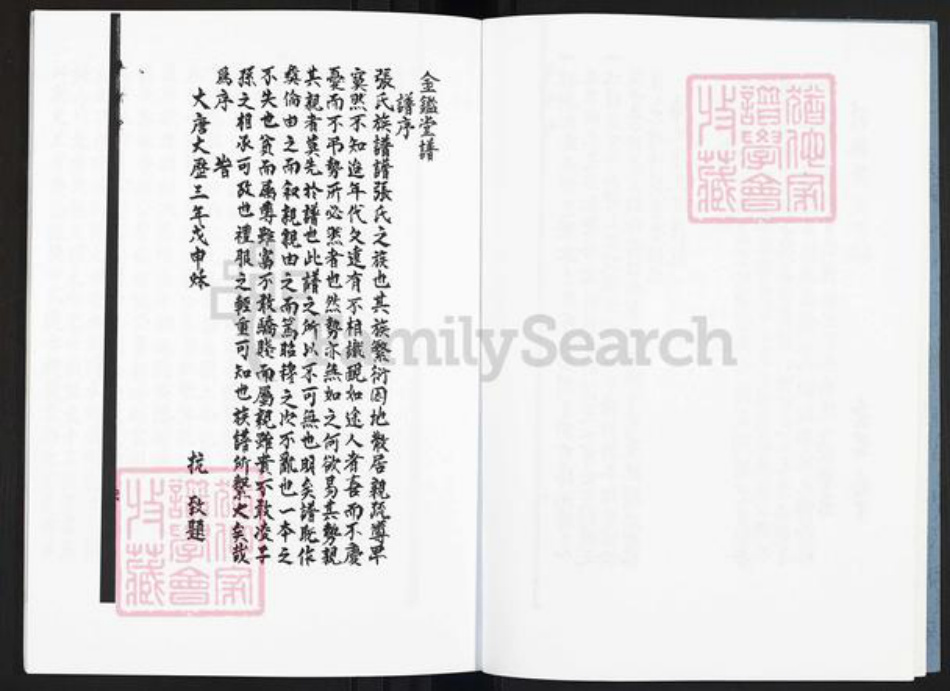 金鑑堂譜
譜序
張氏族譜譜張氏之族也其族繁衍因地散居親疏尊卑
寞然不知迨年代久遠有不相識覩如途人者喜而不慶
憂而不弔勢所必然者也然勢亦無如之何欲易其勢親
其親者莫先於譜也此譜之所以不可無也明矣譜既作
彝倫由之而叙親親由之而篤昭穆之次不亂也一本之
不失也貧而属尊雖富不敢驕賤而屬親雖貴不敢凌子
孫之相承可考也禮服之輕重可知也族譜所繫大矣哉
爲序 旹
大唐大歷三年戊申秌
抗 敬題
FamilySearch
猶他家
譜學會
收藏
猶他家
譜學會
收藏